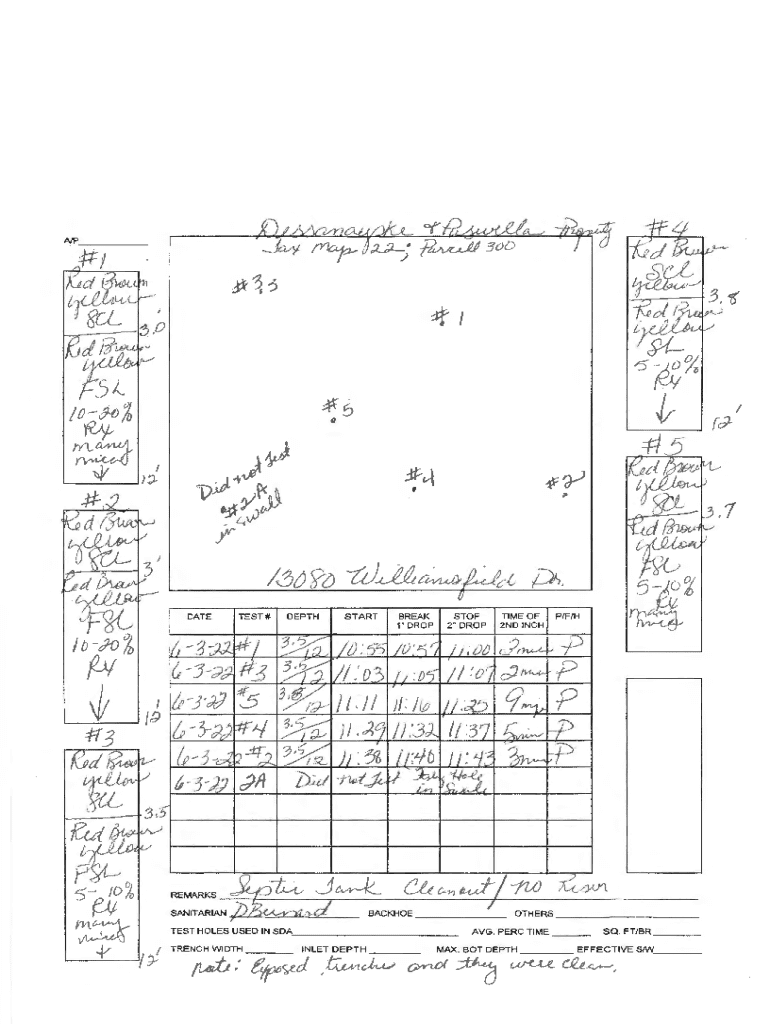 A/P
Dessanayske & Paswella Property
Tax Map 22; Parcell 300
#1
Red Brown
yellow
SCL
3.0'
Red Brown
yellow
FSL
10-20%
Rx
many
mica
12'
#2
Red Brown
yellow
SCL
3'
Red Brown
yellow
FSL
10-20%
Rx
12'
#3
Red Brown
yellow
SCL
3.5
Red Brown
yellow
FSL
5-10%
Rx
many
mica
12'
#3
#1
#5
Did not Test
#2A
in swall
#4
#2
13080 Williamsfield Dr.
#4
Red Brown
SCL
yellow
3.8
Red Brown
yellow
SL
5-10%
Rx
12'
#5
Red Brown
yellow
SCL
3.7
Red Brown
yellow
FSL
5-10%
Rx
many
mica
DATE TEST # DEPTH START BREAK 1" DROP STOP 2" DROP TIME OF 2ND INCH P/F/H
6-3-22 #1 3.5/12 10:55 10:57 11:00 3min P
6-3-22 #3 3.5/12 11:03 11:05 11:07 2min P
6-3-22 #5 3.8/12 11:11 11:16 11:25 9min P
6-3-22 #4 3.5/12 11:29 11:32 11:37 5min P
6-3-22 #2 3.5/12 11:38 11:40 11:43 3min P
6-3-22 2A Did not Test Hole
in Swale
REMARKS Septic Tank Cleanout/no Riser
SANITARIAN DBernard BACKHOE OTHERS
TEST HOLES USED IN SDA AVG. PERC TIME SQ. FT/BR
TRENCH WIDTH INLET DEPTH MAX. BOT DEPTH EFFECTIVE S/W
note: Exposed trenches and they were clean.